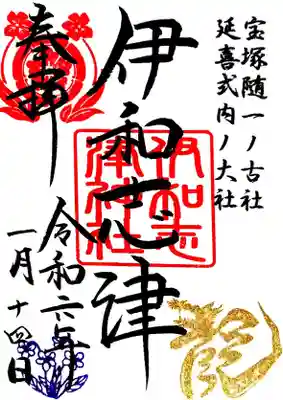 宝塚随一ノ古社
延喜式内ノ大社
伊和志津
伊和志
津神社
奉拝
令和六年
一月十四日
龍